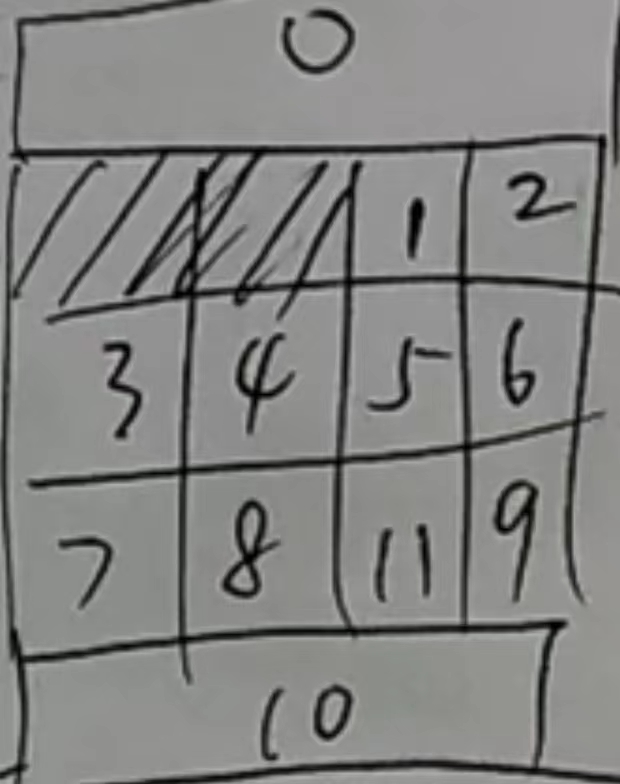 0
1 2
3 4 5 6
7 8 11 9
10